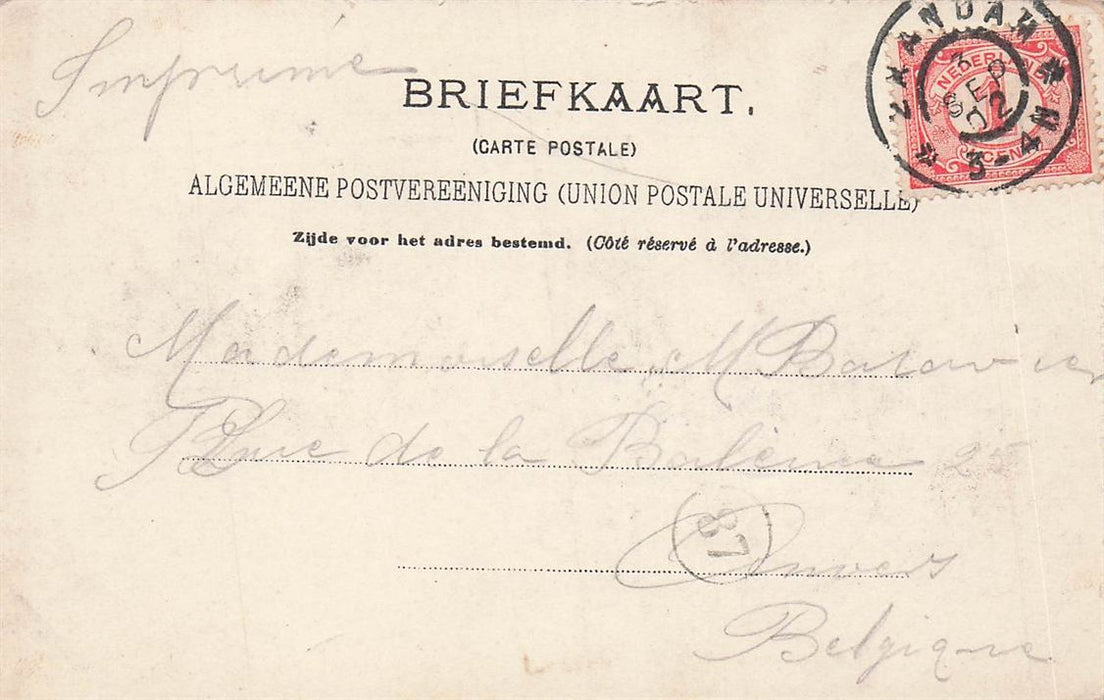 Imprimé
BRIEFKAART.
(CARTE POSTALE)
ALGEMEENE POSTVEREENIGING (UNION POSTALE UNIVERSELLE)
Zijde voor het adres bestemd. (Côté réservé à l'adresse.)
ZAANDAM
3 SEP 02
3-4 N
NEDERLAND
1 CENT
Mademoiselle M
Rue de la Baleine 25
Anvers
87
Belgique